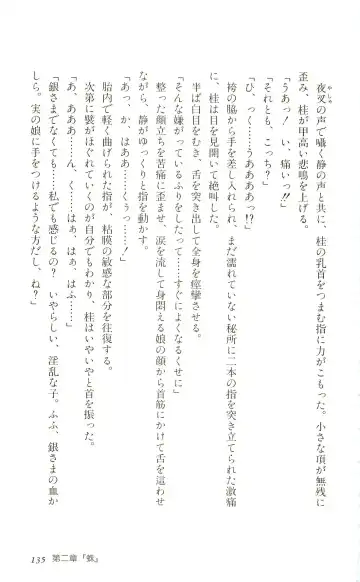 夜叉の声で囁く静の声と共に、桂の乳首をつまむ指に力がこもった。小さな頂が無残に
やしゃ
歪み、桂が甲高い悲鳴を上げる。
「うあっ！　い、痛いっ!!」
「それとも、こっち？」
「ひ、っく……うあああっ!?」
袴の脇から手を差し入れられ、まだ濡れていない秘所に二本の指を突き立てられた激痛
に、桂は目を見開いて絶叫した。
半ば白目をむき、舌を突き出して全身を痙攣させる。
「そんな嫌がっているふりをしたって……すぐによくなるくせに」
整った顔立ちを苦痛に歪ませ、涙を流して身悶える娘の顔から首筋にかけて舌を這わせ
ながら、静がゆっくりと指を動かす。
「あっ、か、はああ……くぅっ……！」
胎内で軽く曲げられた指が、粘膜の敏感な部分を往復する。
次第に襞がほぐれていくのが自分でもわかり、桂はいやいやと首を振った。
「あ、あああ……ん、く……はぁ、はぁ、はふ……」
「銀さまでなくても……私でも感じるの？　いやらしい、淫乱な子。ふふ、銀さまの血か
しら。実の娘に手をつけるような方だし、ね？」
135　第二章『蛛』